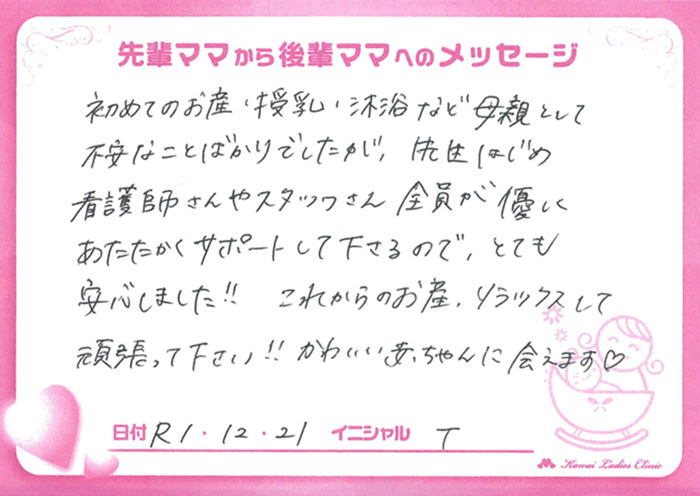 先輩ママから後輩ママへのメッセージ
初めてのお産・授乳・沐浴など母親として
不安なことばかりでしたが、先生はじめ
看護師さんやスタッフさん全員が優しく
あたたかくサポートして下さるので、とても
安心しました!! これからのお産、リラックスして
頑張って下さい!! かわいい赤ちゃんに会えます♡
日付 R1・12・21 イニシャル T
Kawai Ladies Clinic